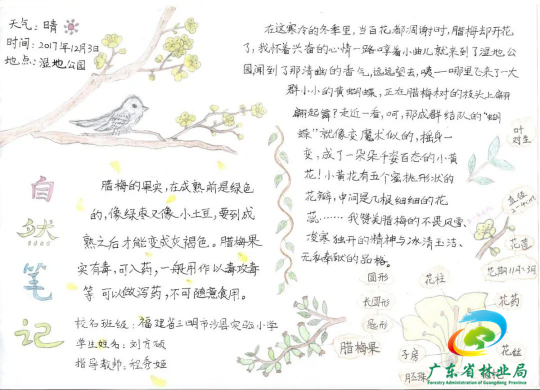 天气：晴
时间：2017年12月3日
地点：湿地公园
在这寒冷的冬季里，当百花都凋谢时，腊梅却开花
了，我怀着兴奋的心情一路哼着小曲儿就来到了湿地公
园闻到了那清幽的香气，远远望去，咦—哪里飞来了一大
群小小的黄蝴蝶，正在腊梅树的枝头上翩
翩起舞？走近一看，呵，那成群结队的“蝴
蝶”就像变魔术似的，摇身一
变，成了一朵朵千姿百态的小黄
花！小黄花有五个蜜桃形状的
花瓣，中间是几根细细的花
蕊……我赞美腊梅的不畏风雪、
凌寒独开的精神与冰清玉洁、
无私奉献的品格。
自然笔记
腊梅的果实，在成熟前是绿色
的，像绿枣又像小土豆，要到成
熟之后才能变成灰褐色。腊梅果
实有毒，可入药，一般用作以毒攻毒
等可以做泻药，不可随意食用。
校名班级：福建省三明市沙县实验小学
学生姓名：刘方硕
指导教师：
叶
对生
直径
花蕾
花期11月-3月
圆形
长圆形
腊梅果
花柱
花药
花丝
子房
胚珠
广东省林业局
Forestry Administration of Guangdong Province